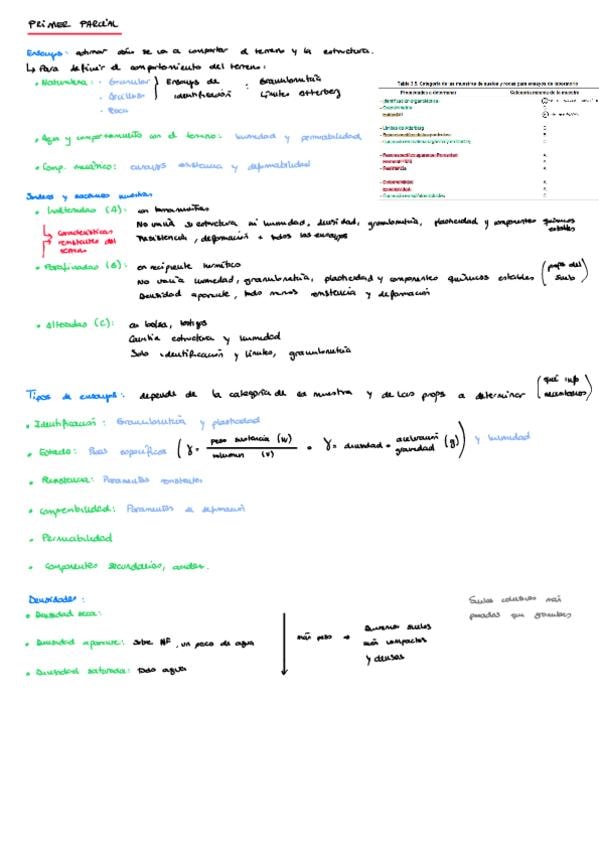 PRIMER PARCIAL
Ensayos: estimar cómo se va a comportar el terreno y la estructura.
↳ Para definir el comportamiento del terreno:
• Naturaleza: - Granular
- Arcilloso
- Roca
Ensayos de identificación : Granulometría
Límites Atterberg
Tabla 3.5. Categoría de las muestras de suelos y rocas para ensayos de laboratorio
• Agua y comportamiento con el terreno: humedad y permeabilidad
• Comp. mecánico: ensayos resistencia y deformabilidad
Sondeos y sacamos muestras
• Inalteradas (A): en tomamuestras
No varía ni estructura ni humedad, densidad, granulometría, plasticidad y componentes químicos estables
Resistencia, deformación + todos los ensayos
↳ Características resistentes del terreno
• Parafinadas (B): en recipiente hermético
No varía humedad, granulometría, plasticidad y componentes químicos estables (props del suelo)
Densidad aparente, todo menos resistencia y deformación
• Alteradas (C): en bolsa, testigos
Cambia estructura y humedad
Solo identificación y límites, granulometría
Tipos de ensayos: depende de la categoría de la muestra y de las props a determinar (qué info necesitamos)
• Identificación: Granulometría y plasticidad
• Estado: Pesos específicos (γ = peso sustancia (W) / volumen (V) o γ = densidad · aceleración gravedad (g)) y humedad
• Resistencia: Parámetros resistentes
• Compresibilidad: Parámetros de deformación
• Permeabilidad
• Componentes secundarios, análisis.
Densidades:
• Densidad seca:
• Densidad aparente: sobre NF, un poco de agua
• Densidad saturada: todo agua
más peso →
suelos
más compactos
y densos
Suelos cohesivos más
pesados que granulares